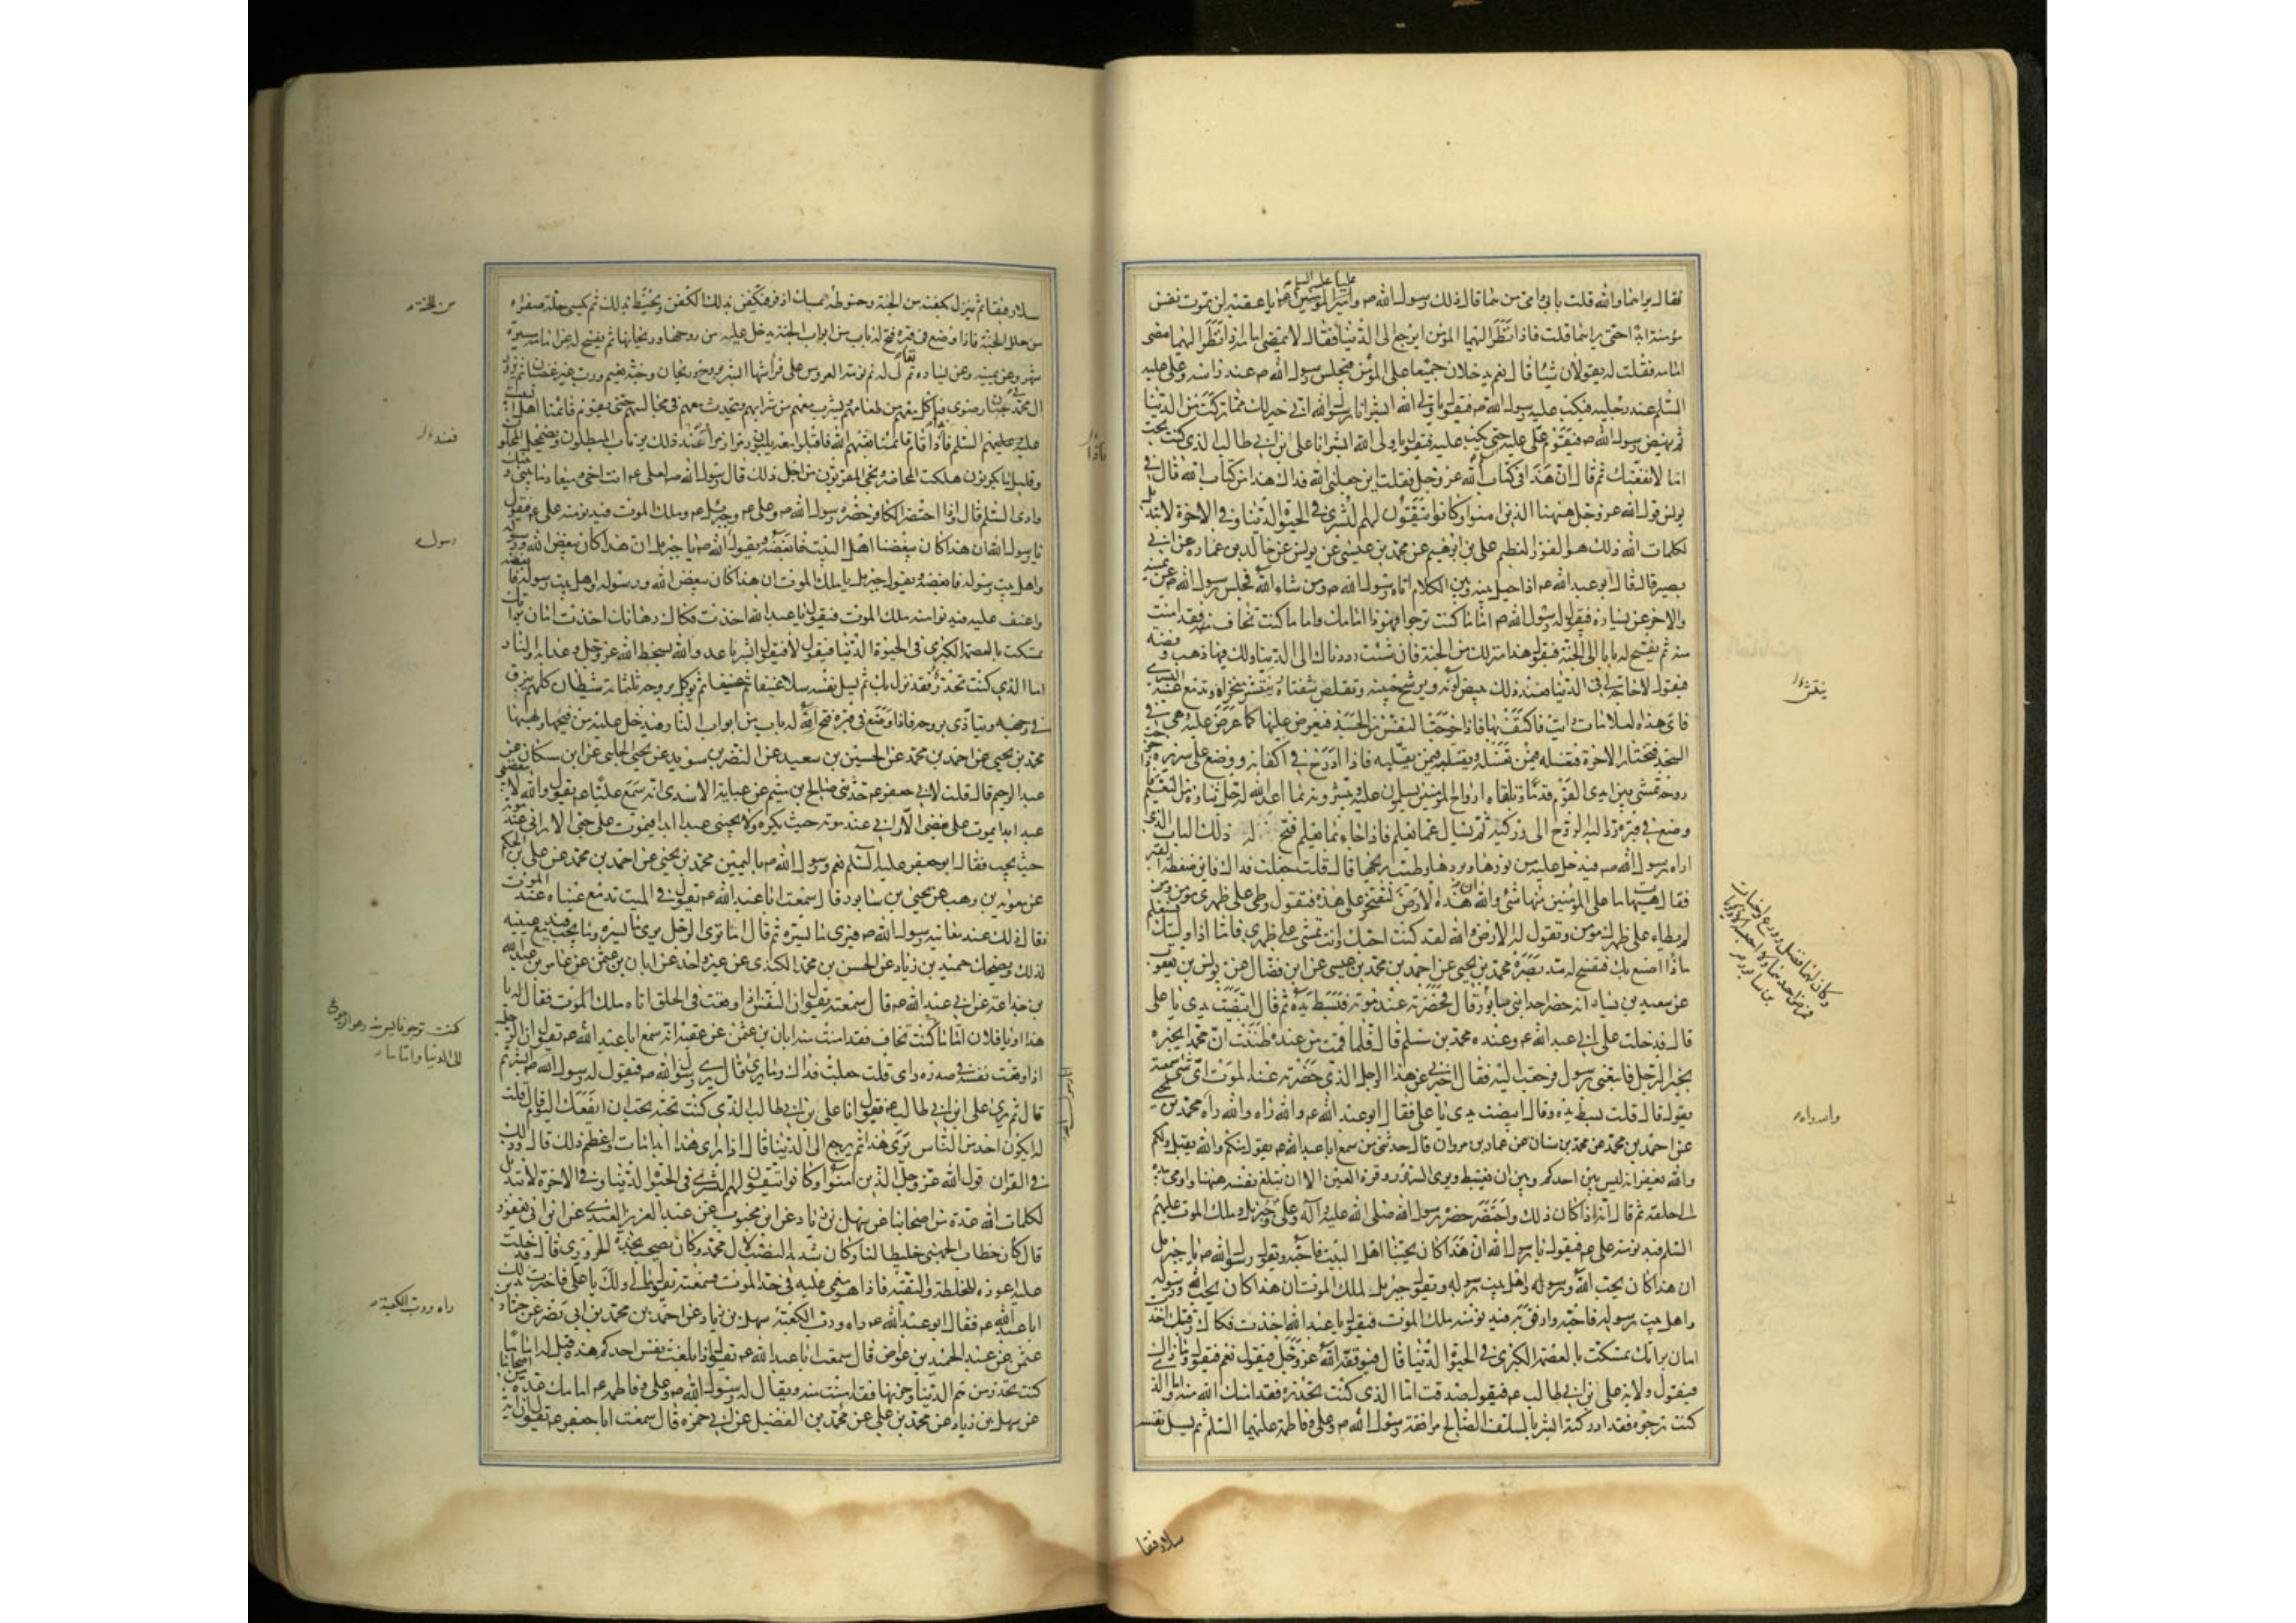 فقال يراهما والله قلت بابي وامي من هما قال ذلك رسول الله ص وامير المؤمنين ع يا عقبه لن تموت نفس
مؤمنة ابدا حتى يراهما قلت فاذا نظر اليهما المؤمن ايرجع الى الدنيا فقال لا يمضي امامه اذا نظر اليهما مضى
امامه فقلت له يقولان شيئا قال نعم يدخلان جميعا على المؤمن فيجلس رسول الله ص عند راسه وعلي عليه
السلم عند رجليه فيكب عليه رسول الله ص فيقول يا ولي الله ابشر انا رسول الله اني خير لك مما تركت من الدنيا
ثم ينهض رسول الله ص فيقوم علي عليه حتى يكب عليه فيقول يا ولي الله ابشر انا علي ابن ابي طالب الذي كنت تحب
اما لانفعنك ثم قال ان هذا في كتاب الله عز وجل فقلت اين جعلني الله فداك هذا من كتاب الله قال في
يونس قول الله عز وجل ههنا الذين امنوا وكانوا يتقون لهم البشرى في الحيوة الدنيا وفي الاخرة لا تبديل
لكلمات الله ذلك هو الفوز العظيم علي بن ابرهيم عن محمد بن عيسى عن يونس عن خالد بن عماره عن ابي
بصير قال قال ابو عبد الله ع اذا حيل بينه وبين الكلام اتاه رسول الله ص ومن شاء الله فجلس رسول الله ص عن يمينه
والاخر عن يساره فيقول له رسول الله ص اما ما كنت ترجوا فهوذا امامك واما ما كنت تخاف منه فقد امنت
منه ثم يفتح له باب الى الجنة فيقول هذا منزلك من الجنة فان شئت رددناك الى الدنيا ولك فيها ذهب وفضه
فيقول لا حاجة لي في الدنيا فعند ذلك يبيض لونه ويرشح جبينه وتقلص شفتاه وتنتشر منخراه وتدمع عينه اليسرى
فاي هذه العلامات رايت فاكتف بها فاذا خرجت النفس من الجسد فيعرض عليها كما عرض عليه وهي في
الجسد فتختار الاخرة فتغسله فيمن يغسله وتقلبه فيمن يقلبه فاذا ادرج في اكفانه ووضع على سريره خرجت
روحه تمشي بين ايدي القوم قدما وتلقاه ارواح المؤمنين يسلمون عليه ويبشرونه بما اعد الله له جل ثناؤه من النعيم فاذا
وضع في قبره رد اليه الروح الى وركيه ثم يسال عما يعلم فاذا جاء بما يعلم فتح له ذلك الباب الذي
اراه رسول الله ص فيدخل عليه من نورها وبردها وطيب ريحها قال قلت جعلت فداك فاين ضغطة القبر
فقال هيهات ما على المؤمنين منها شئ والله ان هذه الارض لتفتخر على هذه فتقول وطئ على ظهري مؤمن ولم
يطاء على ظهرك مؤمن وتقول له الارض والله لقد كنت احبك وانت تمشي على ظهري فاما اذا وليتك فستعلم
ماذا اصنع بك فتفسح له مد بصره محمد بن يحيى عن احمد بن محمد بن عيسى عن ابن فضال عن يونس بن يعقوب
عن سعيد بن يسار انه حضر احد ابني سابور قال فحضرته عند موته فبسط يده ثم قال ابيضت يدي يا علي
قال فدخلت على ابي عبد الله ع وعنده محمد بن مسلم قال فلما قمت من عنده ظننت ان محمدا يخبره
بخبر الرجل فاتبعني رسول فرجعت اليه فقال اخبرني عن هذا الرجل الذي حضرته عند الموت اي شئ سمعته
يقول قال قلت بسط يده وقال ابيضت يدي يا علي فقال ابو عبد الله ع والله راه والله راه محمد بن يحيى
عن احمد بن محمد عن محمد بن سنان عن عمار بن مروان قال حدثني من سمع ابا عبد الله ع يقول منكم والله يقبل ولكم
والله يغفر انه ليس بين احدكم وبين ان يغتبط ويرى السرور وقرة العين الا ان تبلغ نفسه ههنا واومى بيده
الى حلقه ثم قال انه اذا كان ذلك واحتضر حضره رسول الله صلى الله عليه وآله وعلي وجبريل وملك الموت عليهم
السلم فيدنو منه علي ع فيقول يا رسول الله ان هذا كان يحبنا اهل البيت فاحبه ويقول رسول الله ص يا جبريل
ان هذا كان يحب الله ورسوله واهل بيت رسوله ويقول جبريل لملك الموت ان هذا كان يحب الله ورسوله
واهل بيت رسوله فاحبه وارفق به فيدنو منه ملك الموت فيقول يا عبد الله اخذت فكاك رقبتك اخذت
امان براتك تمسكت بالعصمة الكبرى في الحيوة الدنيا قال فيوفقه الله عز وجل فيقول نعم فيقول وما ذاك
فيقول ولاية علي بن ابي طالب ع فيقول صدقت اما الذي كنت تحذره فقد امنك الله منه واما الذي
كنت ترجوه فقد ادركته ابشر بالسلف الصالح مرافقة رسول الله ص وعلي وفاطمة عليهما السلم ثم يسل نفسه
ينتشر
وكان لهما فضل وورع واخبات
فمرض احدهما ولا احسبه الا زكريا
بن سابور
والله راه
سلا رفيقا
سلا رفيقا ثم ينزل بكفنه من الجنة وحنوطه بمسك اذفر فيكفن بذلك الكفن ويحنط بذلك ثم يكسى حلة صفراء
من حلل الجنة فاذا وضع في قبره فتح له باب من ابواب الجنة يدخل عليه من روحها وريحانها ثم يفسح له عن امامه مسيرة
شهر وعن يمينه وعن يساره ثم يقال له نم نومة العروس على فراشها ابشر بروح وريحان وجنة نعيم ورب غير غضبان ثم يزور
ال محمد في جنان رضوى فياكل معهم من طعامهم ويشرب معهم من شرابهم ويتحدث معهم في مجالسهم حتى يقوم قائمنا اهل البيت
عليهم السلم فاذا قام قائمنا بعثهم الله فاقبلوا معه يلبون زمرا زمرا عند ذلك يرتاب المبطلون ويضمحل المحلون
وقليل ما يكونون هلكت المحاضير ونجى المقربون من اجل ذلك قال رسول الله ص لعلي ع انت اخي وميعاد ما بيني وبينك
وادي السلم قال واذا احتضر الكافر حضره رسول الله ص وعلي ع وجبريل ع وملك الموت فيدنو منه علي ع فيقول
يا رسول الله ان هذا كان يبغضنا اهل البيت فابغضه ويقول رسول الله ص يا جبريل ان هذا كان يبغض الله ورسوله
واهل بيت رسوله فابغضه ويقول جبريل يا ملك الموت ان هذا كان يبغض الله ورسوله واهل بيت رسوله فابغضه
واعنف عليه فيدنو منه ملك الموت فيقول يا عبد الله اخذت فكاك رهانك اخذت امان براتك
تمسكت بالعصمة الكبرى في الحيوة الدنيا فيقول لا فيقول ابشر يا عدو الله بسخط الله عز وجل وعذابه والنار
اما الذي كنت تحذره فقد نزل بك ثم يسل نفسه سلا عنيفا ثم يوكل بروحه ثلثمائة شيطان كلهم يبزق
في وجهه ويتاذى بروحه فاذا وضع في قبره فتح الله له باب من ابواب النار فيدخل عليه من فيحها ولهبها
محمد بن يحيى عن احمد بن محمد عن الحسين بن سعيد عن النضر بن سويد عن يحيى الحلبي عن ابن مسكان عن
عبد الرحيم قال قلت لابي جعفر ع حدثني صالح بن ميثم عن عباية الاسدي انه سمع عليا ع يقول والله لا يبغضني
عبد ابدا يموت على بغضي الا راني عند موته حيث يكره ولا يحبني عبد ابدا فيموت على حبي الا راني عند موته
حيث يحب فقال ابو جعفر عليه السلم نعم ورسول الله ص باليمين محمد بن يحيى عن احمد بن محمد عن علي بن الحكم
عن معوية بن وهب عن يحيى بن سابور قال سمعت ابا عبد الله ع يقول في الميت تدمع عيناه عند الموت
فقال ذلك عند معاينة رسول الله ص فيرى ما يسره ثم قال اما ترى الرجل يرى ما يسره وما يحب فتدمع عينيه
لذلك ويضحك حميد بن زياد عن الحسن بن محمد الكندي عن غير واحد عن ابان بن عثمن عن عامر بن عبد الله
بن جذاعة عن ابي عبد الله ع قال سمعته يقول ان النفس اذا وقعت في الحلق اتاه ملك الموت فقال له يا
هذا او يا فلان اما ما كنت تخاف فقد امنت منه ابان بن عثمن عن عقبة انه سمع ابا عبد الله ع يقول ان الرجل
اذا وقعت نفسه في صدره راى قلت جعلت فداك وما يرى قال يرى رسول الله ص فيقول له رسول الله ص ابشر ثم
قال ثم يرى علي ابن ابي طالب ع فيقول انا علي بن ابي طالب الذي كنت تحبه تحب ان انفعك اليوم قال قلت
له ايكون احد من الناس يرى هذا ثم يرجع الى الدنيا قال اذا راى هذا ابدا مات واعظم ذلك قال وذلك
في القران قول الله عز وجل الذين امنوا وكانوا يتقون لهم البشرى في الحيوة الدنيا وفي الاخرة لا تبديل
لكلمات الله عدة من اصحابنا عن سهل بن زياد عن ابن محبوب عن عبد العزيز العبدي عن ابن ابي يعفور
قال كان خطاب الجهني خليطا لنا وكان شديد النصب لال محمد وكان يصحب نجدة الحروري قال فدخلت
عليه اعوده للخلطة والتقية فاذا هو مغمى عليه في حد الموت فسمعته يقول مالي ولك يا علي فاخبرت بذلك
ابا عبد الله ع فقال ابو عبد الله ع راه ورب الكعبة سهل بن زياد عن احمد بن محمد بن ابي نصر عن حماد بن
عثمن عن عبد الحميد بن عواض قال سمعت ابا عبد الله ع يقول اذا بلغت نفس احدكم هذه قيل له اما ما
كنت تحذر من هم الدنيا وحزنها فقد امنت منه ويقال له رسول الله ص وعلي وفاطمه ع امامك عدة من اصحابنا
عن سهل بن زياد عن محمد بن علي عن محمد بن الفضيل عن ابي حمزه قال سمعت ابا جعفر ع يقول ان اية
من الجنة
فعند
رسول
كنت ترجو فايس منه وهو الرجوع
الى الدنيا واما ما
راه ورب الكعبة